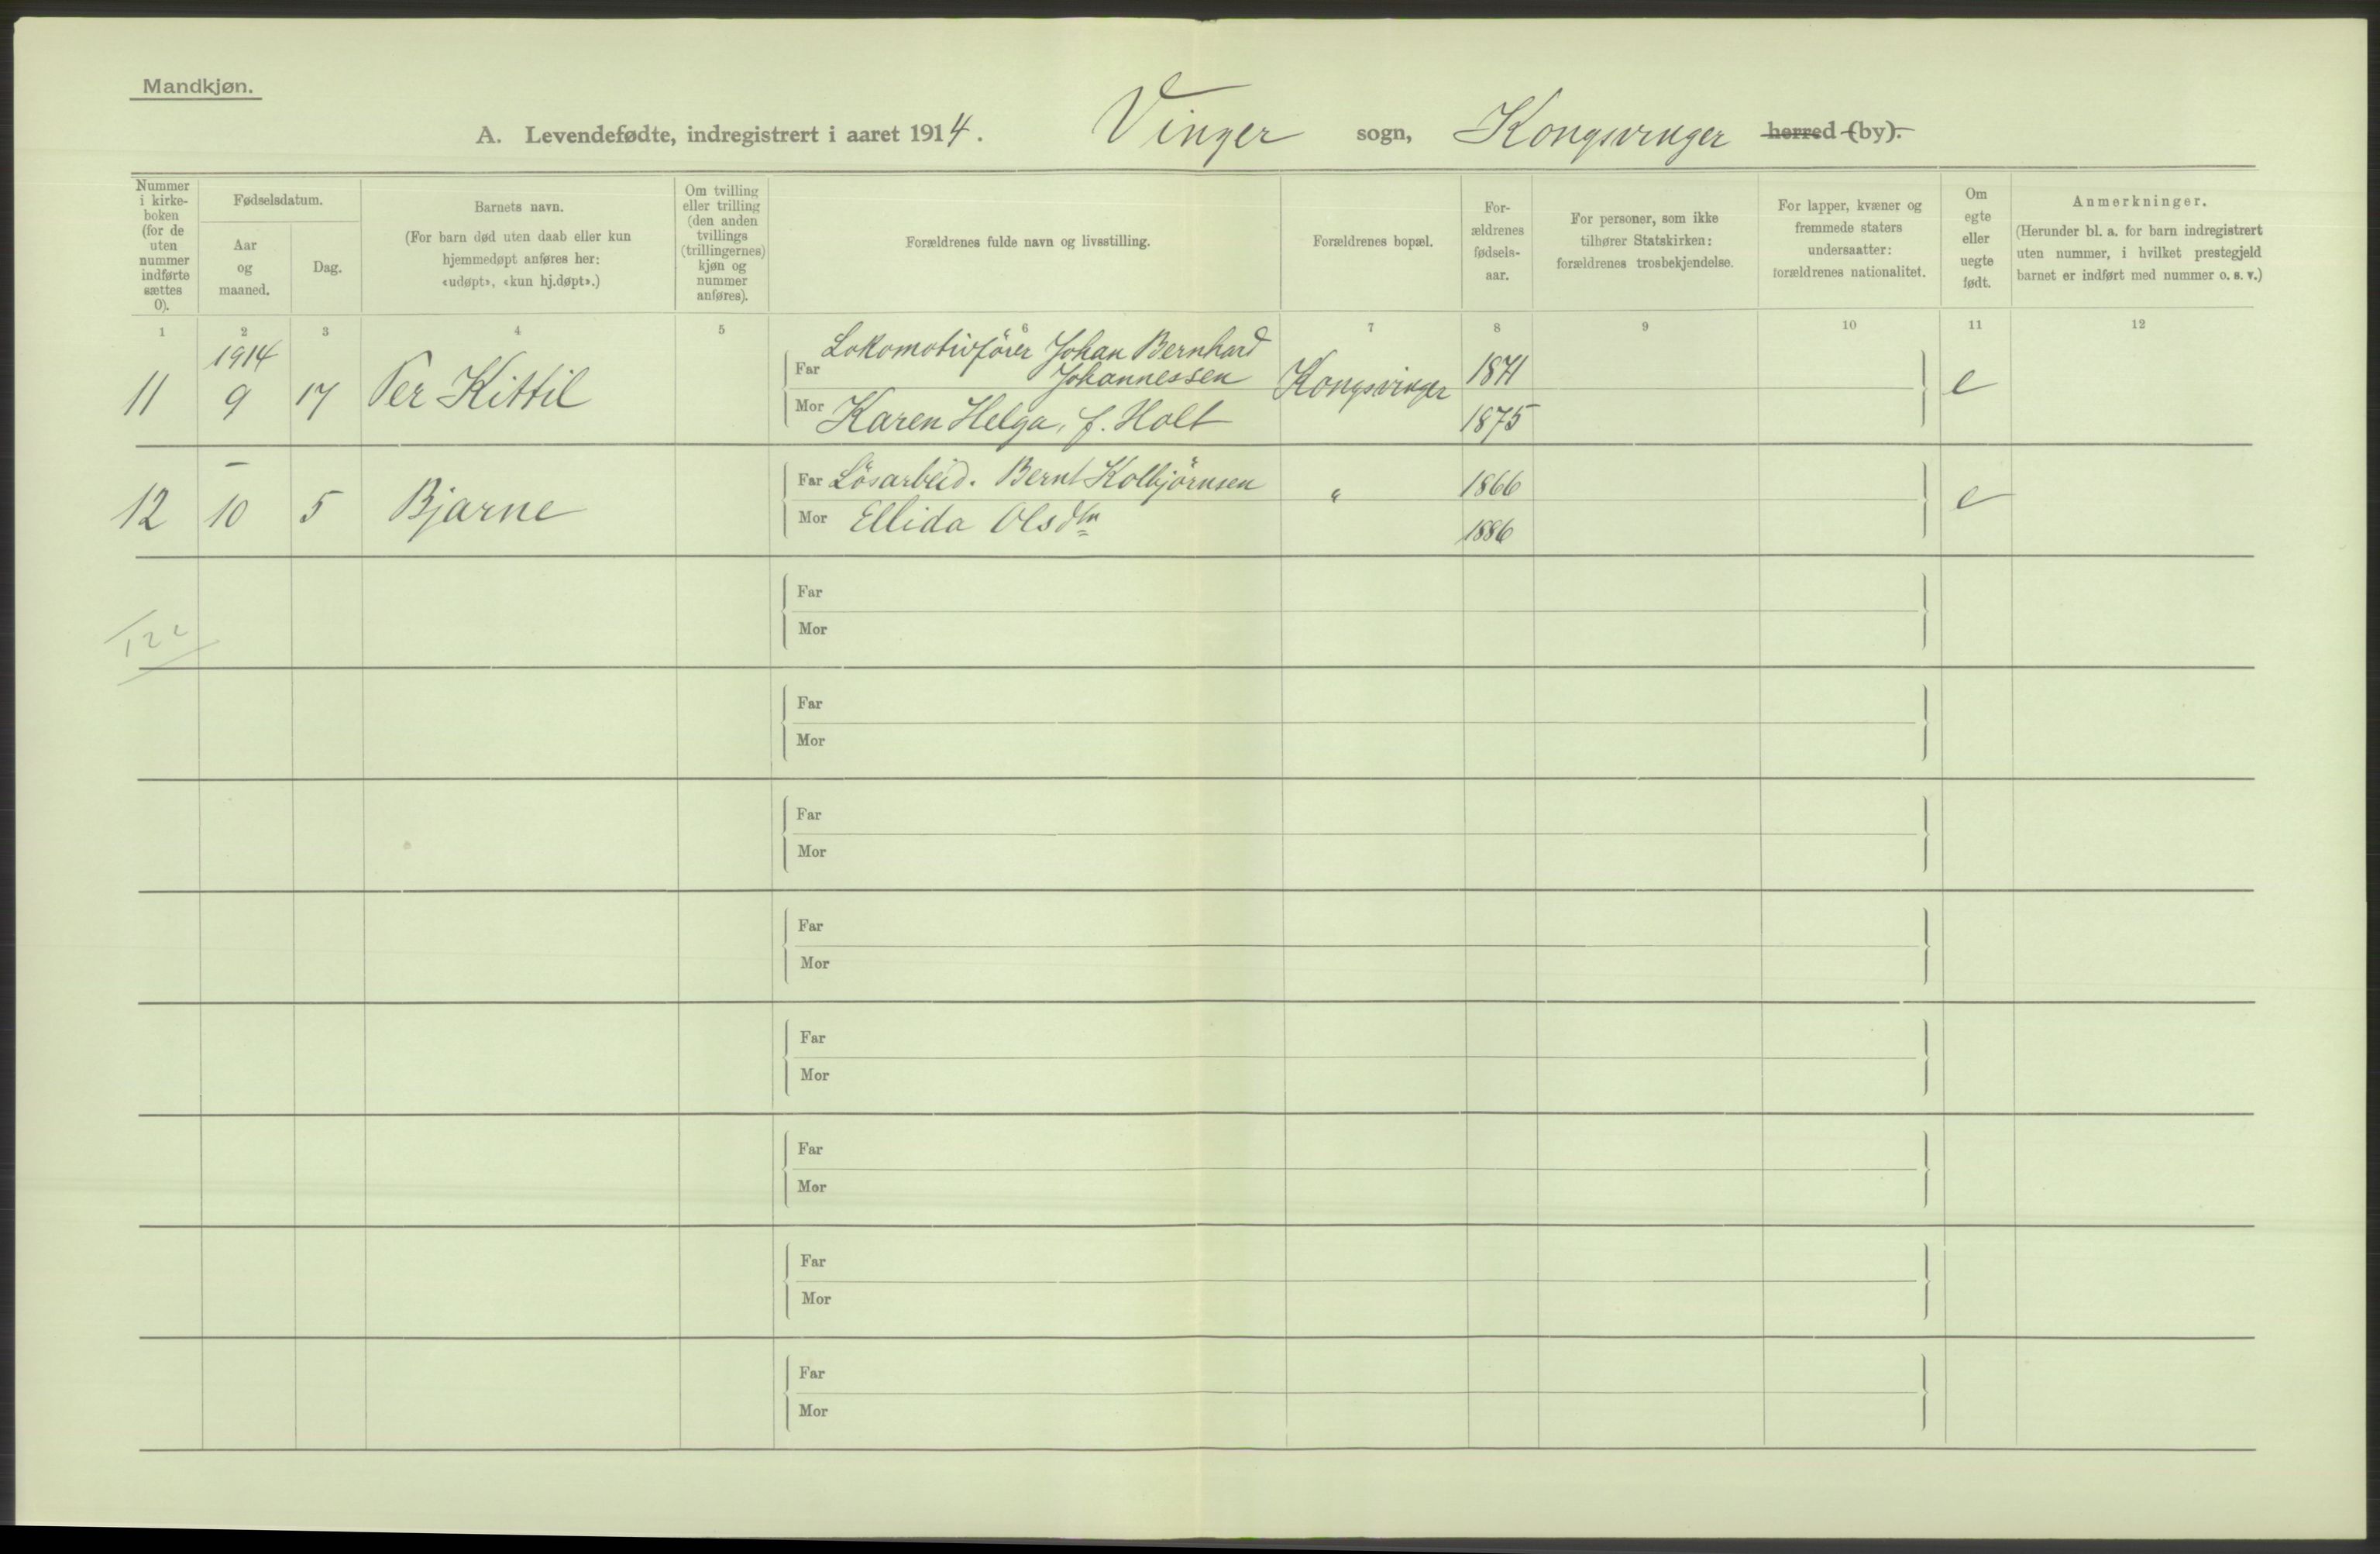 Mandkjøn.
A. Levendefødte, indregistrert i aaret 1914. Vinger sogn, Kongsvinger herred (by).
Nummer i kirkeboken (for de uten nummer indførte sættes 0).
Fødselsdatum.
Aar og maaned.
Dag.
Barnets navn.
(For barn død uten daab eller kun hjemmedøpt anføres her: «udøpt», «kun hj.døpt».)
Om tvilling eller trilling (den anden tvillings (trillingernes) kjøn og nummer anføres).
Forældrenes fulde navn og livsstilling.
Forældrenes bopæl.
Forældrenes fødselsaar.
For personer, som ikke tilhører Statskirken: forældrenes trosbekjendelse.
For lapper, kvæner og fremmede staters undersaatter: forældrenes nationalitet.
Om egte eller uegte født.
Anmerkninger.
(Herunder bl. a. for barn indregistrert uten nummer, i hvilket prestegjeld barnet er indført med nummer o. s. v.)
1 2 3 4 5 6 7 8 9 10 11 12
1914
11 9 17 Per Kittil
Far Lokomotivfører Johan Bernhard
Johannessen Kongsvinger 1871 e
Mor Karen Helga, f. Holt 1875
–
12 10 5 Bjarne
Far Lösarbeid. Bernt Kolbjörnsen " 1866 e
Mor Ellida Olsdtr 1886
Far
Mor
Far
Mor
Far
Mor
Far
Mor
Far
Mor
Far
Mor
Far
Mor
Far
Mor